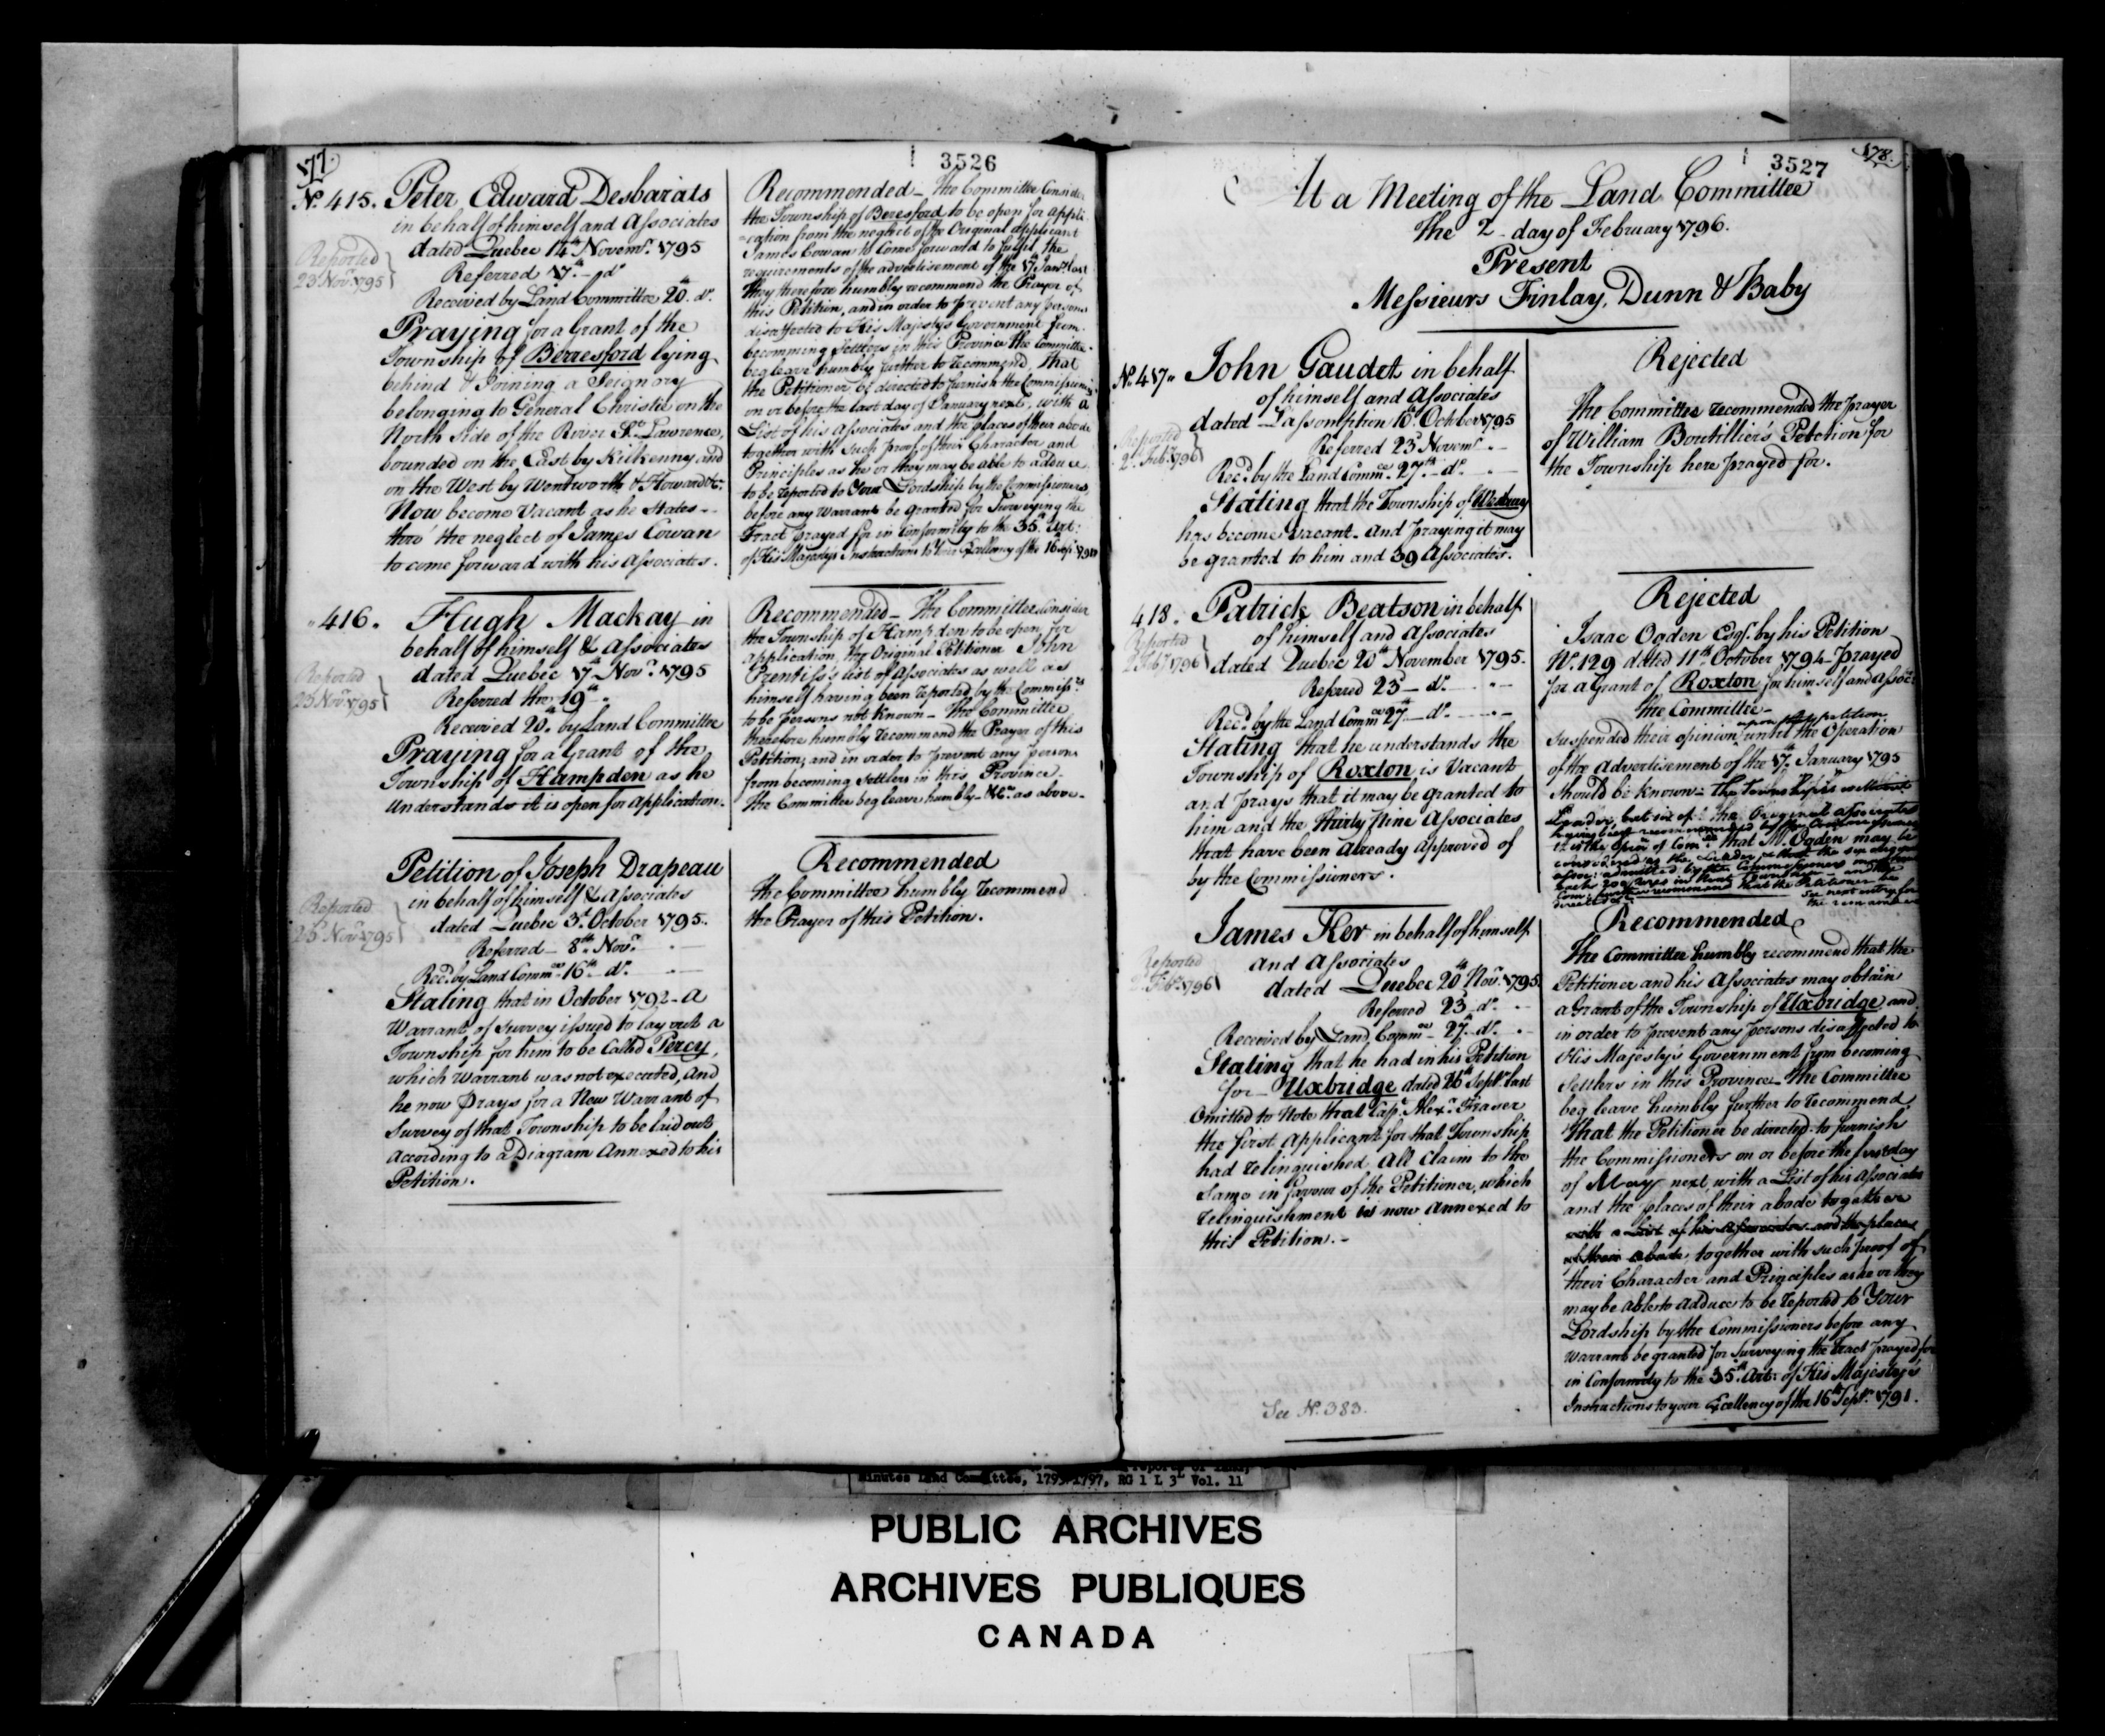 177.
3526
No. 415. Peter Edward Desbarats
in behalf of himself and Associates
dated Quebec 14th Novemr. 1795
Reported
23 Novr. 1795
Referred 17th - do
Received by Land Committee 20th do.
Praying for a Grant of the
Township of Berresford lying
behind & Joining a Seignory
belonging to General Christie on the
North Side of the River St. Lawrence,
bounded on the East by Kilkenny and
on the West by Wentworth & Howard &c.
Now become Vacant as he States -
thro' the neglect of James Cowan
to come forward with his Associates.
Recommended - The Committee Consider
the Township of Beresford to be open for appli
-cation from the neglect of the Original applicant
James Cowan to Come forward to fulfil the
requirements of the advertisement of the 17th Jany. last
They therefore humbly recommend the Prayer of
this Petition, and in order to prevent any persons
disaffected to His Majestys Government from
becomming Settlers in this Province the Committee
beg leave humbly further to recommend, that
the Petitioner be directed to furnish the Commissioners
on or before the last day of January next, with a
List of his Associates and the places of their abode
together with such proof of their Character and
Principles as he or they may be able to adduce
to be reported to Your Lordship by the Commissioners,
before any Warrant be granted for Surveying the
Tract prayed for in Conformity to the 35th Art:
of His Majestys Instructions to Your Excellency of the 16 Sepr. 1791
416. Hugh Mackay in
behalf of himself & Associates
dated Quebec 17th Novr. 1795
Reported
23 Novr. 1795
Referred the 19th
Received 20th by Land Committee
Praying for a Grant of the
Township of Hampden as he
understands it is open for application.
Recommended - The Committee Consider
the Township of Hampden to be open for
application, the Original Petitioner John
Prentiss's list of Associates as well as
himself having been reported by the Commissrs.
to be persons not known - The Committee
therefore humbly recommend the Prayer of this
Petition, and in order to prevent any persons
from becoming Settlers in this Province -
the Committee beg leave humbly - &c. as above -
Petition of Joseph Drapeau
in behalf of himself & Associates
dated Quebec 3d. October 1795.
Reported
23 Novr. 1795
Referred - 8th Novr.
Recd. by Land Commee. 16th do.
Stating that in October 1792 - a
Warrant of Survey issued to lay out a
Township for him to be Called Percy,
which Warrant was not executed, and
he now Prays for a New Warrant of
Survey of that Township to be laid out
according to a Diagram Annexed to his
Petition.
Recommended
The Committee humbly recommend
the Prayer of this Petition.
3527
178.
At a Meeting of the Land Committee
The 2 day of February 1796.
Present
Messieurs Finlay, Dunn & Baby
No. 417 John Gaudet in behalf
of himself and Associates
dated Lassomption 10th October 1795
Reported
2 Feby. 1796
Referred 23d Novemr. -
Recd. by the Land Commee. 27th do.
Stating that the Township of Westbury
has become Vacant. And praying it may
be granted to him and 39 Associates.
Rejected
The Committee recommended the prayer
of William Boutillier's Petition for
the Township here prayed for.
418. Patrick Beatson in behalf
of himself and Associates
Reported
2 Feby. 1796
dated Quebec 20th November 1795.
Referred 23d - do. -
Recd. by the Land Commee 27th - do. -
Stating that he understands the
Township of Roxton is Vacant
and prays that it may be granted to
him and the Thirty Nine Associates
that have been already approved of
by the Commissioners.
Rejected
Isaac Ogden Esqr. by his Petition
No. 129 dated 11th October 1794 - prayed
for a Grant of Roxton for himself and Assoc:
the Committee -
upon that petition
suspended their opinion until the Operation
of the Advertisement of the 17th January 1795
should be known - The Township is without
Leader, but six of the Original associates
having been recommended by the Commissioners
it is the Opinn of Comee that Mr. Ogden may be
considered as the Leader, & that the six original
assoc: admitted by the Commissioners may have
each 200 acres in that Township - and the
Come. further recommend that the Petitioner be
directed
see next entry for
the remainder
James Ker in behalf of himself
and Associates
Reported
2 Feby. 1796
dated Quebec 20th Novr. 1795.
Referred 23 do. -
Received by Land Commee - 27th do. -
Stating that he had in his Petition
for - Uxbridge dated 26th Septr. last
Omitted to Note that Capt. Alexr. Fraser
the first applicant for that Township
had relinquished all Claim to the
same in favour of the Petitioner, which
relinquishment is now annexed to
this Petition. -
See No. 383.
Recommended
The Committee humbly recommend that the
Petitioner and his Associates may obtain
a Grant of the Township of Uxbridge and
in order to prevent any persons disaffected to
His Majesty's Government from becoming
Settlers in this Province - The Committee
beg leave humbly further to recommend
that the Petitioner be directed to furnish
the Commissioners on or before the first day
of May next with a List of his Associates
and the places of their abode together
with a List of his Associates and the places
of their abode together with such proof of
their Character and Principles as he or they
may be able to adduce to be reported to Your
Lordship by the Commissioners before any
Warrant be granted for Surveying the tract prayed for
in Conformity to the 35th Art: of His Majesty's
Instructions to your Excellency of the 16th Sepr. 1791.
Minutes Land Committee, 1795-1797, RG 1 L 3L Vol. 11
PUBLIC ARCHIVES
ARCHIVES PUBLIQUES
CANADA